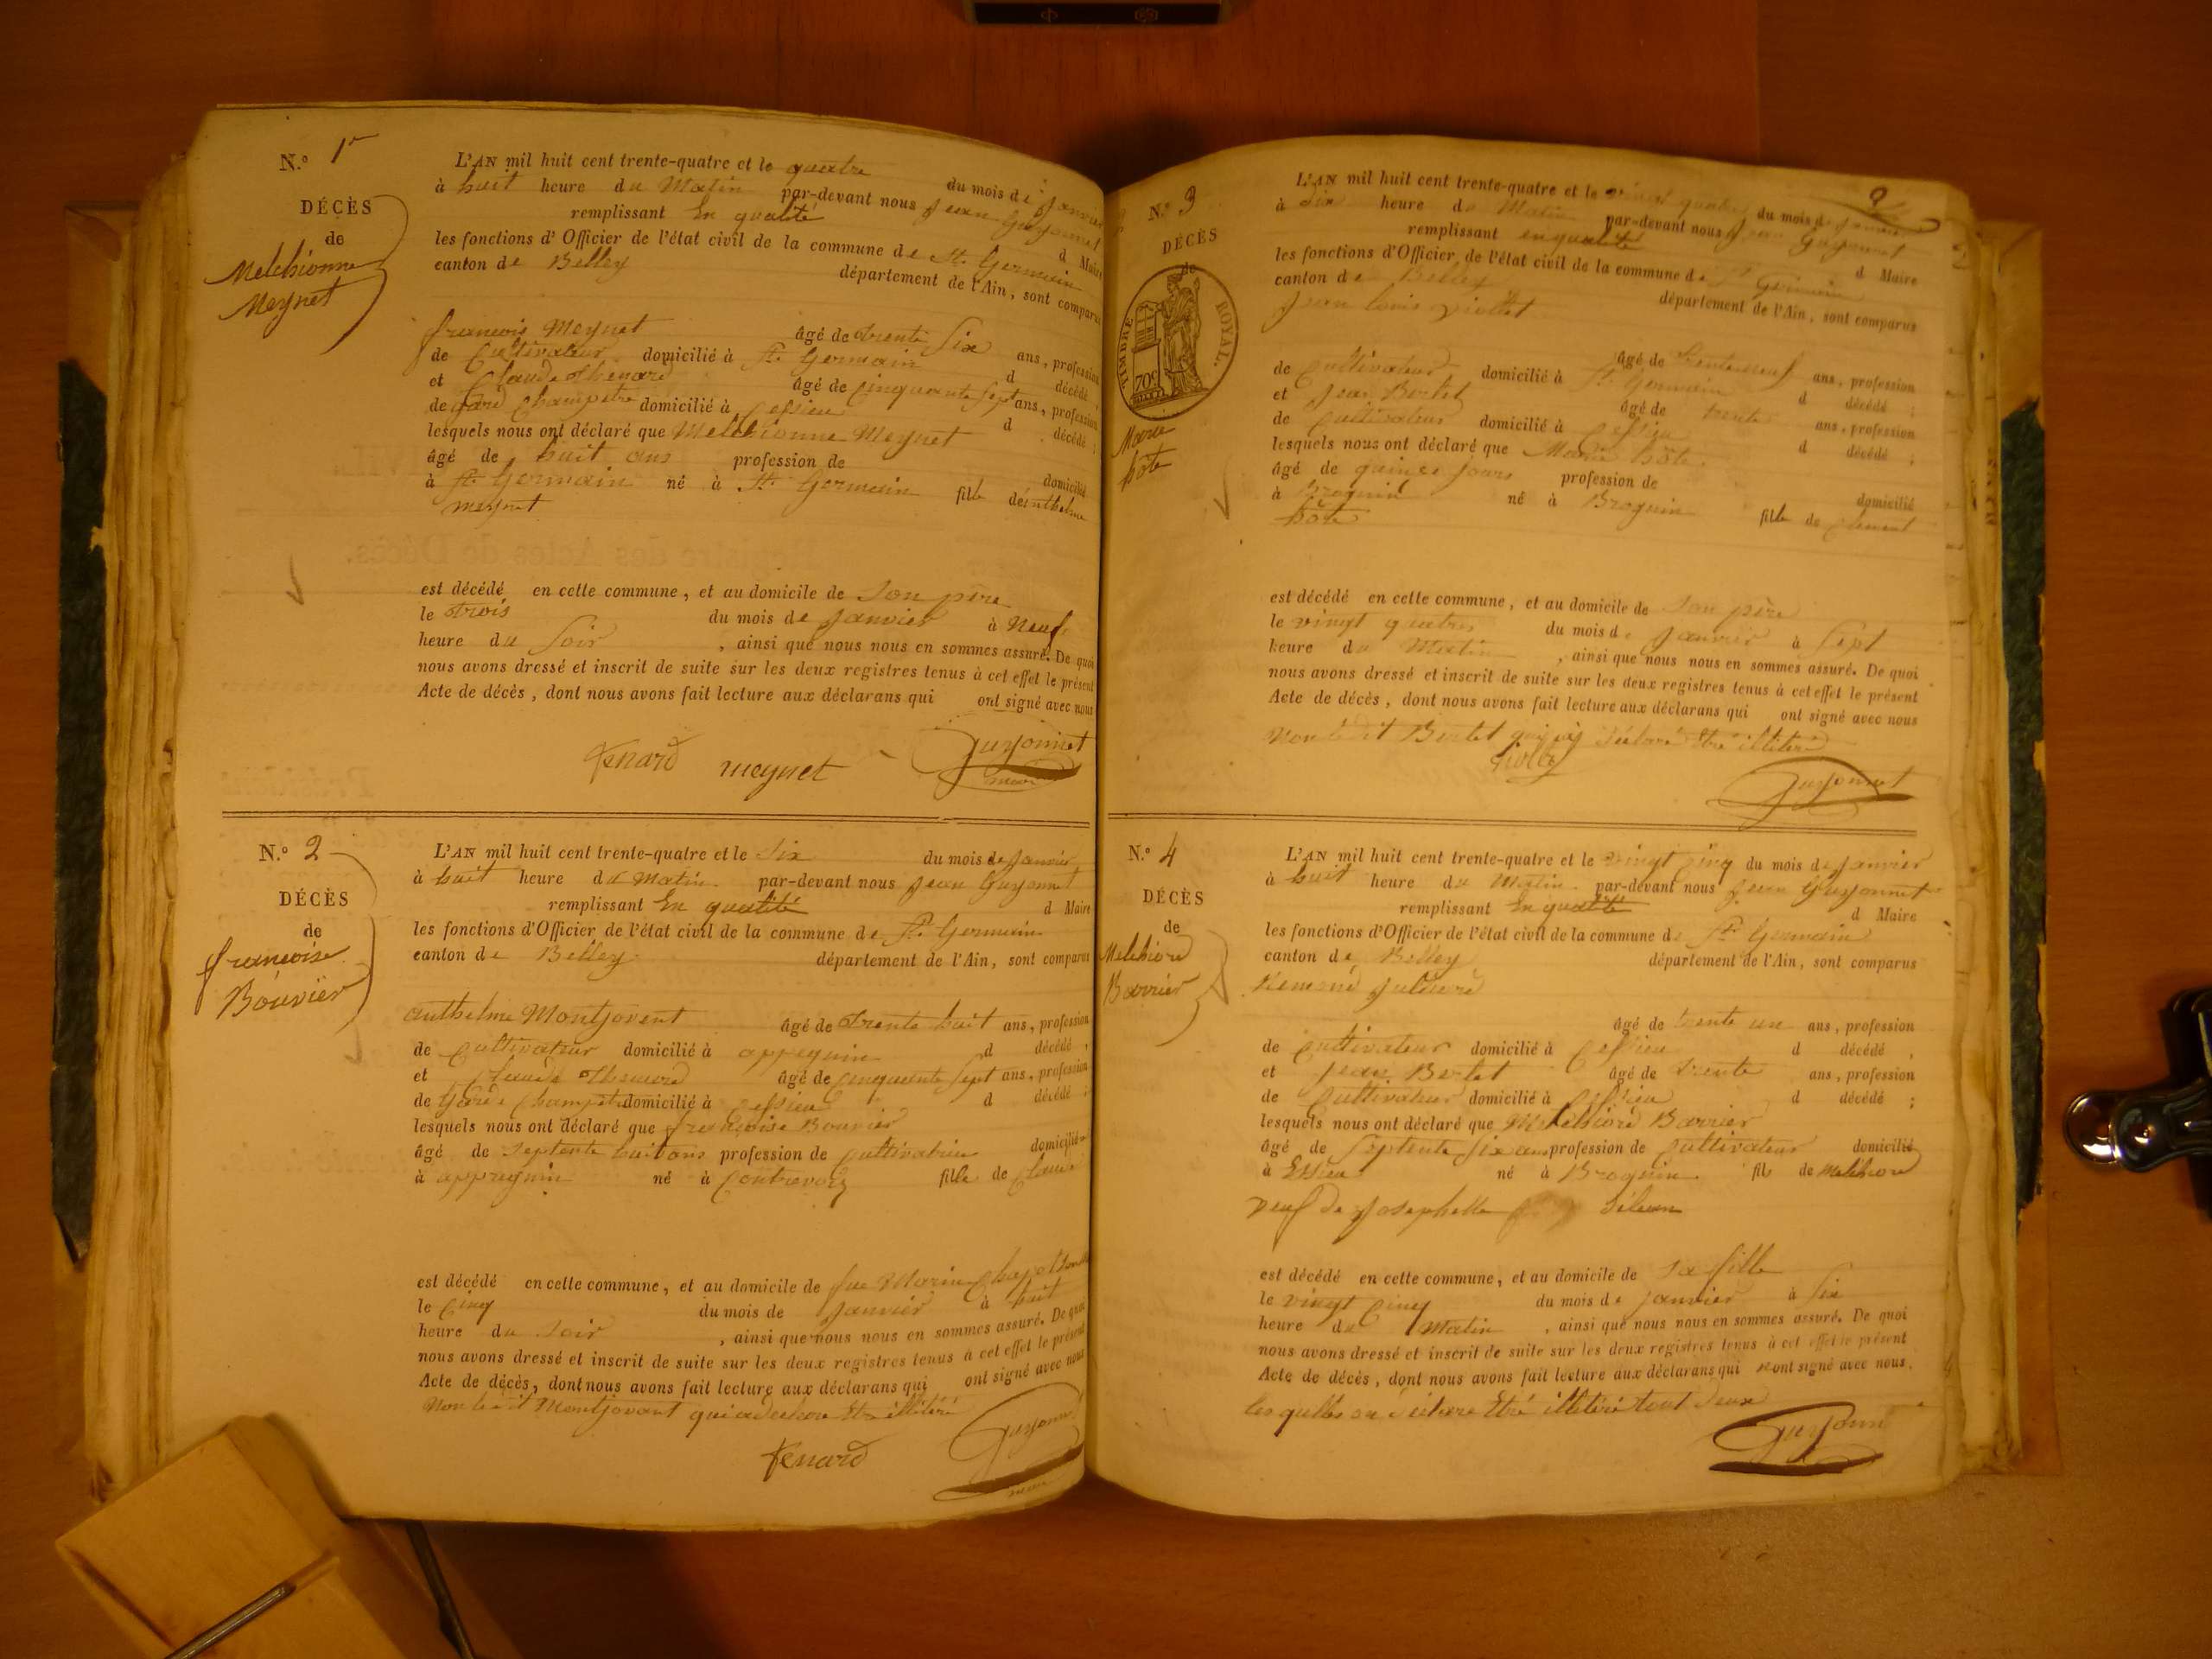 N.° 1er
DÉCÈS
de
Melchionne
Meynet
L'AN mil huit cent trente-quatre et le quatre du mois de Janvier
à huit heure du Matin par-devant nous Jean Guyonnet
remplissant En qualité d Maire
les fonctions d'Officier de l'état civil de la commune de St. Germain
canton de Belley département de l'Ain, sont comparus
françois Meynet âgé de trente six ans, profession
de Cultivateur domicilié à St. Germain d décédé,
et Claude thenard âgé de Cinquante Sept ans, profession
de garde Champetre domicilié à Cessieu d décédé;
lesquels nous ont déclaré que Melchionne Meynet
âgé de huit ans profession de domicilié
à St. Germain né à St. Germain fille de anthelme
meynet
est décédé en cette commune, et au domicile de Son père
le trois du mois de Janvier à Neuf
heure du Soir, ainsi que nous nous en sommes assuré. De quoi
nous avons dressé et inscrit de suite sur les deux registres tenus à cet effet le présent
Acte de décès, dont nous avons fait lecture aux déclarans qui ont signé avec nous
tenard meynet Guyonnet
maire
N.° 2
DÉCÈS
de
françoise
Bouvier
L'AN mil huit cent trente-quatre et le Six du mois de Janvier
à huit heure du Matin par-devant nous Jean Guyonnet
remplissant En qualité d Maire
les fonctions d'Officier de l'état civil de la commune de St. Germain
canton de Belley département de l'Ain, sont comparus
anthelme Montjovent âgé de Trente huit ans, profession
de Cultivateur domicilié à appregnin d décédé,
et Claude thenard âgé de Cinquante Sept ans, profession
de Garde Champetre domicilié à Cessieu d décédé;
lesquels nous ont déclaré que françoise Bouvier
âgé de Septente huit ans profession de Cultivatrice domicilié
à appregnin né à Contrevoz fille de Claude
est décédé en cette commune, et au domicile de feu Marin
le Cinq du mois de Janvier à huit
heure du Soir, ainsi que nous nous en sommes assuré. De quoi
nous avons dressé et inscrit de suite sur les deux registres tenus à cet effet le présent
Acte de décès, dont nous avons fait lecture aux déclarans qui ont signé avec nous
Non ledit Montjovant qui a declare Etre illitéré
tenard Guyonnet
N.° 3
DÉCÈS
de
TIMBRE ROYAL.
70c
Marie
hôte
L'AN mil huit cent trente-quatre et le vingt quatre du mois de Janvier
à Dix heure du Matin par-devant nous Jean Guyonnet
remplissant en qualité d Maire
les fonctions d'Officier de l'état civil de la commune de St Germain
canton de Belley département de l'Ain, sont comparus
Jean louis viollet
âgé de trente neuf ans, profession
de Cultivateur domicilié à St. Germain d décédé;
et Jean Berlet âgé de trente ans, profession
de Cultivateur domicilié à Cessieu d décédé;
lesquels nous ont déclaré que Marie hôte
âgé de quince Jours profession de domicilié
à Brognin né à Brognin fille de Clement
hôte
est décédé en cette commune, et au domicile de Son père
le vingt quatres du mois de Janvier à Sept
heure du Matin, ainsi que nous nous en sommes assuré. De quoi
nous avons dressé et inscrit de suite sur les deux registres tenus à cet effet le présent
Acte de décès, dont nous avons fait lecture aux déclarans qui ont signé avec nous
Non ledit Berlet qui à déclaré Etre illitéré
Guyonnet
N.° 4
DÉCÈS
de
Melchiord
Barrier
L'AN mil huit cent trente-quatre et le vingt Cinq du mois de Janvier
à huit heure du Matin par-devant nous Jean Guyonnet
remplissant En qualité d Maire
les fonctions d'Officier de l'état civil de la commune de St. Germain
canton de Belley département de l'Ain, sont comparus
âgé de trente un ans, profession
de Cultivateur domicilié à Cessieu d décédé,
et Jean Berlet âgé de trente ans, profession
de Cultivateur domicilié à Cessieu d décédé;
lesquels nous ont déclaré que Melchiord Barrier
âgé de Septente Six ans profession de Cultivateur domicilié
à Essieu né à Brognin fil de Melchiord
veuf de Josephette
est décédé en cette commune, et au domicile de Sa fille
le vingt Cinq du mois de Janvier à Six
heure du Matin, ainsi que nous nous en sommes assuré. De quoi
nous avons dressé et inscrit de suite sur les deux registres tenus à cet effet le présent
Acte de décès, dont nous avons fait lecture aux déclarans qui n'ont signé avec nous.
lesquelles on déclare Etre illitéré tout deux
Guyonnet